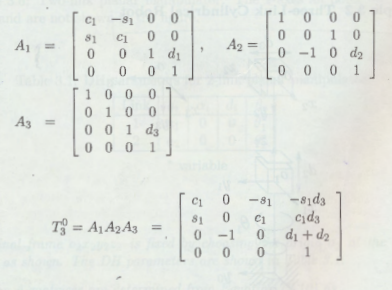 A₁ = [ c₁ −s₁ 0 0
s₁ c₁ 0 0
0 0 1 d₁
0 0 0 1 ] ,
A₂ = [ 1 0 0 0
0 0 1 0
0 −1 0 d₂
0 0 0 1 ]
A₃ = [ 1 0 0 0
0 1 0 0
0 0 1 d₃
0 0 0 1 ]
T₃⁰ = A₁A₂A₃ = [ c₁ 0 −s₁ −s₁d₃
s₁ 0 c₁ c₁d₃
0 −1 0 d₁ + d₂
0 0 0 1 ]